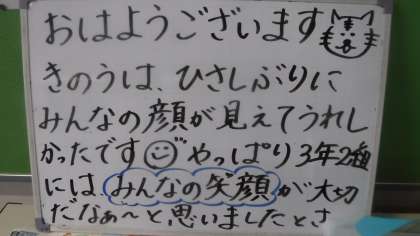 おはようございます
きのうは、ひさしぶりに
みんなの顔が見えてうれし
かったです やっぱり3年2組
には、みんなの笑顔が大切
だなぁ〜と、思いましたとさ